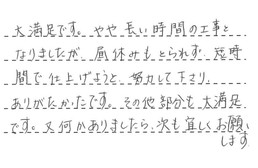 大満足です。やや長い時間の工事と
なりましたが、昼休みもとられず、短時
間で仕上げようと、努力して下さり
ありがたかったです。その他部分も大満足
です。又何かありましたら、次も宜しくお願い
します